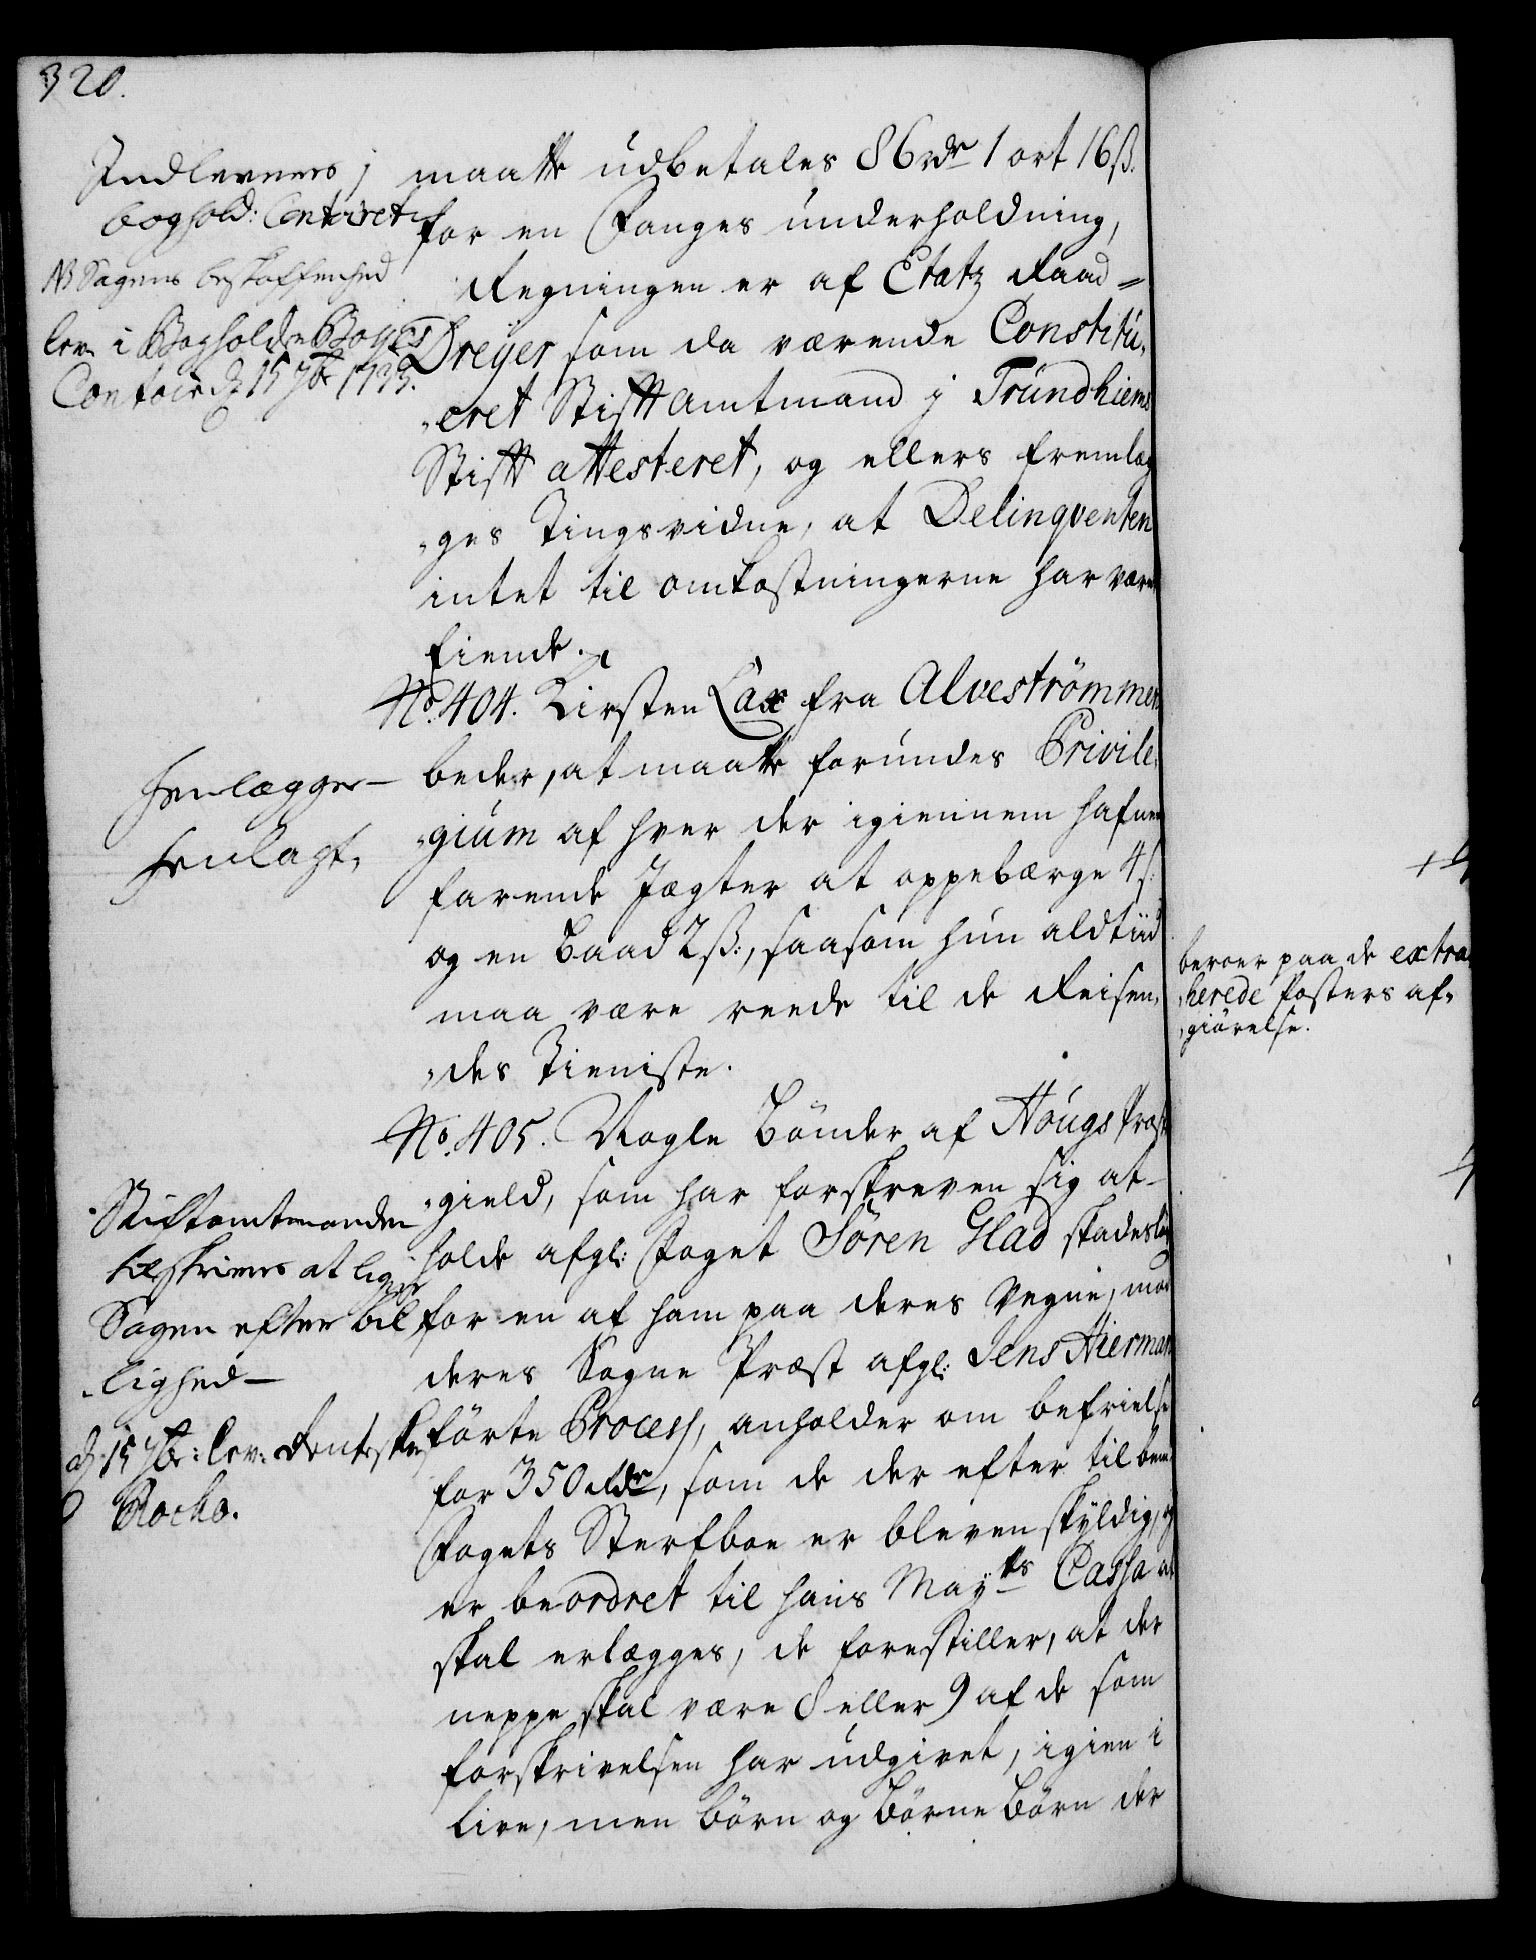 320.
Indleveres j
boghold: Contoiret
NB Sagens beskaffenhed
lev. i Bogholder Boyes
Contoir d. 15 7br 1733.
maatte udbetales 86 rdr 1 ort 16 ß.
for en Fanges underholdning,
Regningen er af Etatz Raad=
Dreyer som da værende Constitu-
-eret Stifft amtmand j Trundhiems
Stifft attesteret, og ellers fremlæg
-ges Tingsvidne, at Delinqventen
intet til omkostningerne har være
Eiende.
No. 404. Kirsten Lax fra Alveströmmen
beder, at maatte forundes Privile-
-gium af hver der igiennem hafnen
farende Jægter at oppebærge 4 ß:
og en Baad 2 ß:, saasom hun aldtiid
maa være reede til de Reisen-
-des Tieniste.
Henlægges
henlagt,
No. 405. Nogle Bönder af Hougs Præste
-gield, som har forskreven sig at
holde afgl: Foget Sören Glad skadeslös
for en af ham paa deres Vegne, mod
deres Sogne Præst afgl: Jens Hierman
förte Process, anholder om befrielse
for 350 Rdr, som de der efter til bem.
Fogets Sterfboe er bleven skyldig, og
er beordret til hans Mayts Cassa at
skal erlægges, de forestiller, at der
neppe skal være 8 eller 9 af de som
forskrivelsen har udgivet, igien i
live, men börn og Börne Börn der
Stiftamtmanden
tilskrives at ligne
Sagen efter bil
-lighed
d. 15 7br: lev: Renteskr.
Rocho.
beroer paa de extra
-herede Posters af-
-giörelse.